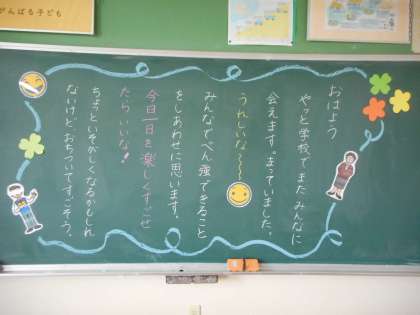 がんばる子ども
おはよう
やっと学校でまたみんなに
会えます。まっていました。
うれしいな～～～
みんなでべん強できること
をしあわせに思います。
今日一日を楽しくすごせ
たらいいな！
ちょっといそがしくなるかもしれ
ないけど、おちついてすごそう。